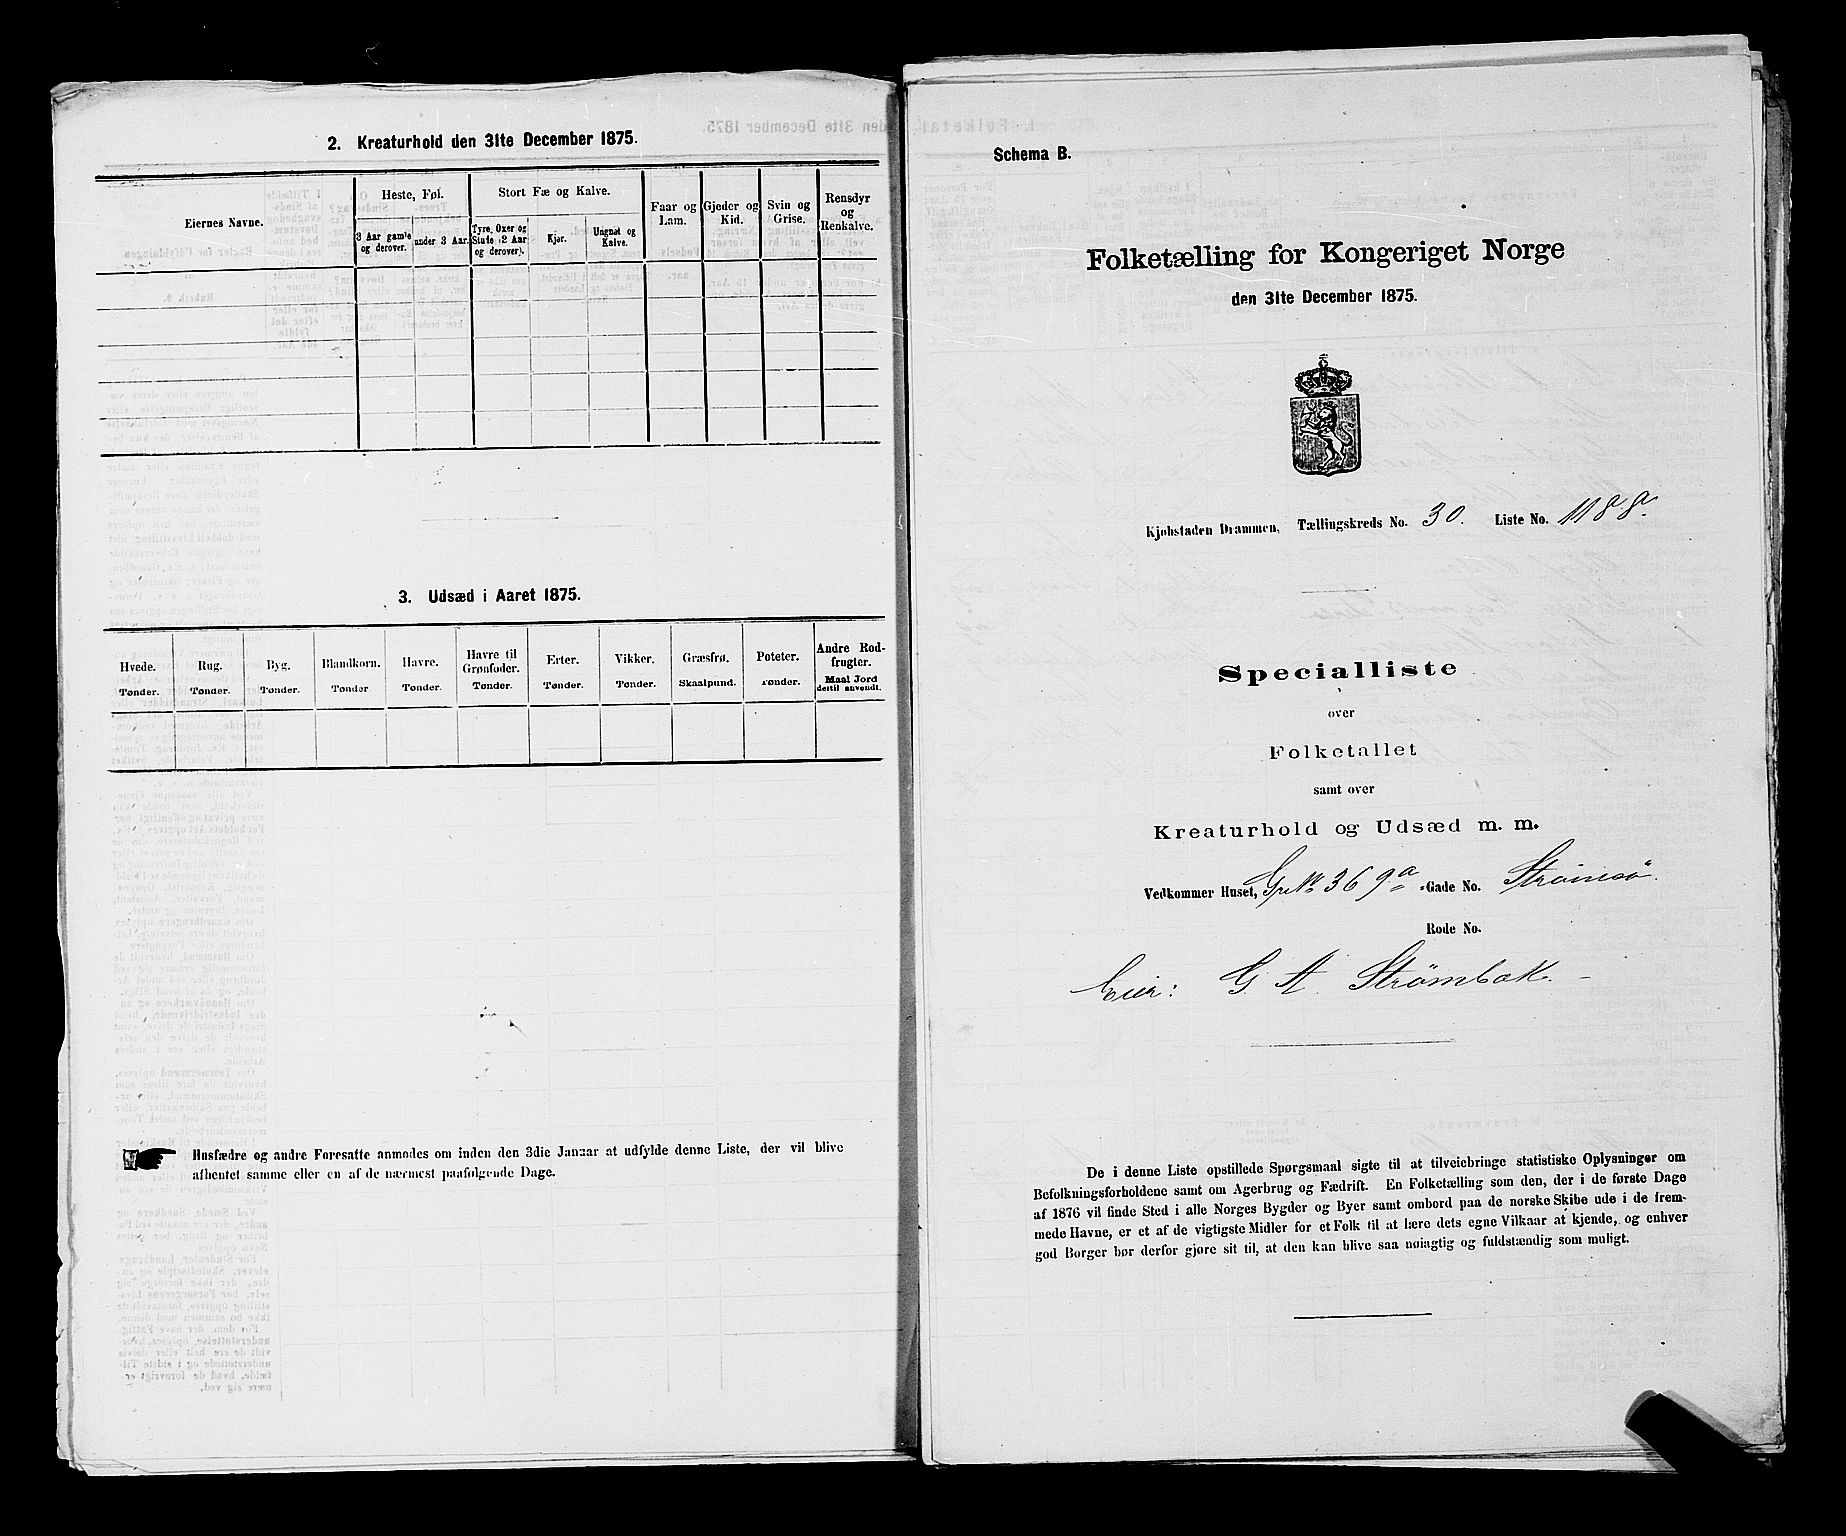 2. Kreaturhold den 31te December 1875.
Eiernes Navne.
Heste, Føl.
Stort Fæ og Kalve.
Faar og Lam.
Gjeder og Kid.
Svin og Grise.
Rensdyr og Renkalve.
3 Aar gamle og derover.
under 3 Aar.
Tyre, Oxer og Stude (2 Aar og derover).
Kjør.
Ungnøt og Kalve.
3. Udsæd i Aaret 1875.
Hvede. Rug. Byg. Blandkorn. Havre. Havre til Grønfoder. Erter. Vikker. Græsfrø. Poteter. Andre Rodfrugter.
Tønder. Tønder. Tønder. Tønder Tønder. Tønder. Tønder. Tønder. Skaalpund. Tønder. Maal Jord dertil anvendt.
Husfædre og andre Foresatte anmodes om inden den 3die Januar at udfylde denne Liste, der vil blive
afhentet samme eller en af de nærmest paafølgende Dage.
Schema B.
Folketælling for Kongeriget Norge
den 31te December 1875.
Kjøbstaden Drammen, Tællingskreds No. 30. Liste No. 118
Specialliste
over
Folketallet
samt over
Kreaturhold og Udsæd m. m.
Vedkommer Huset, Gr No 369a Gade No. Strömsö.
Rode No.
Eier: G. A. Strömbak
De i denne Liste opstillede Spørgsmaal sigte til at tilveiebringe statistiske Oplysninger om
Befolkningsforholdene samt om Agerbrug og Fædrift. En Folketælling som den, der i de første Dage
af 1876 vil finde Sted i alle Norges Bygder og Byer samt ombord paa de norske Skibe ude i de frem-
mede Havne, er et af de vigtigste Midler for et Folk til at lære dets egne Vilkaar at kjende, og enhver
god Borger bør derfor gjøre sit til, at den kan blive saa nøiagtig og fuldstændig som muligt.